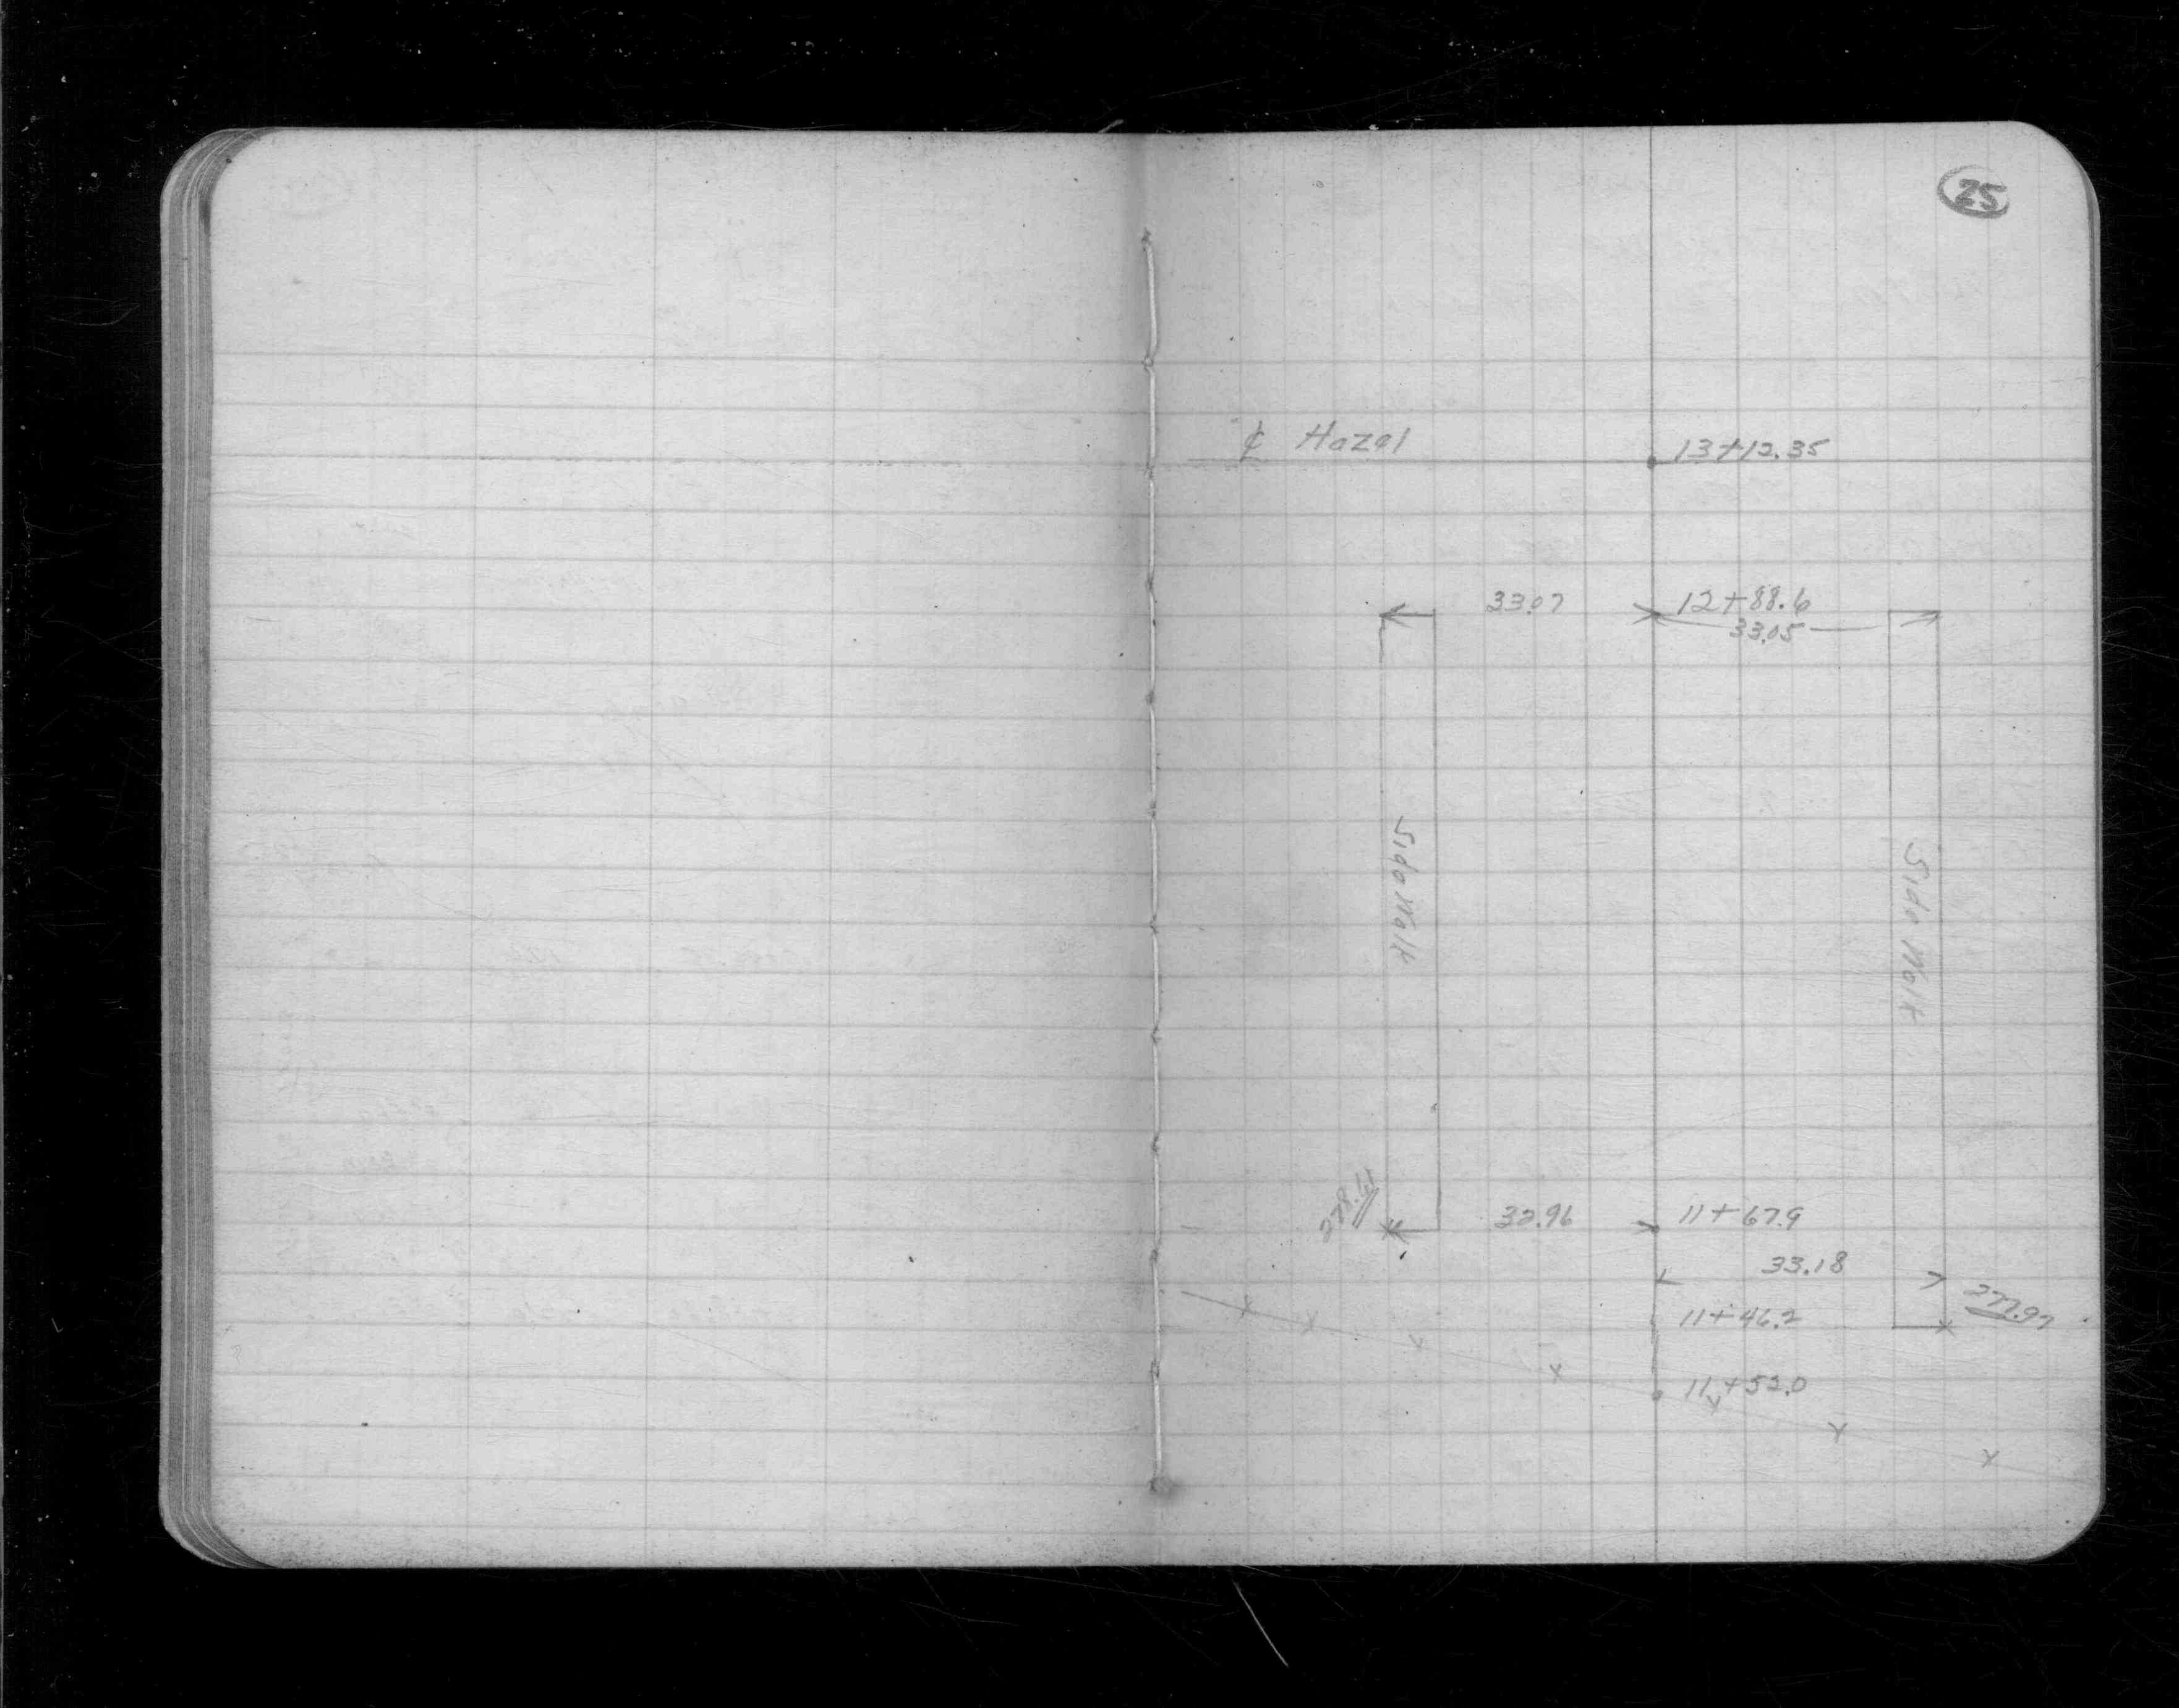 25
℄ Hazel
13+12.35
33.07
12+88.6
33.05
Side Walk
Side Walk
278.61
32.96
11+67.9
33.18
11+46.2
277.97
11+52.0